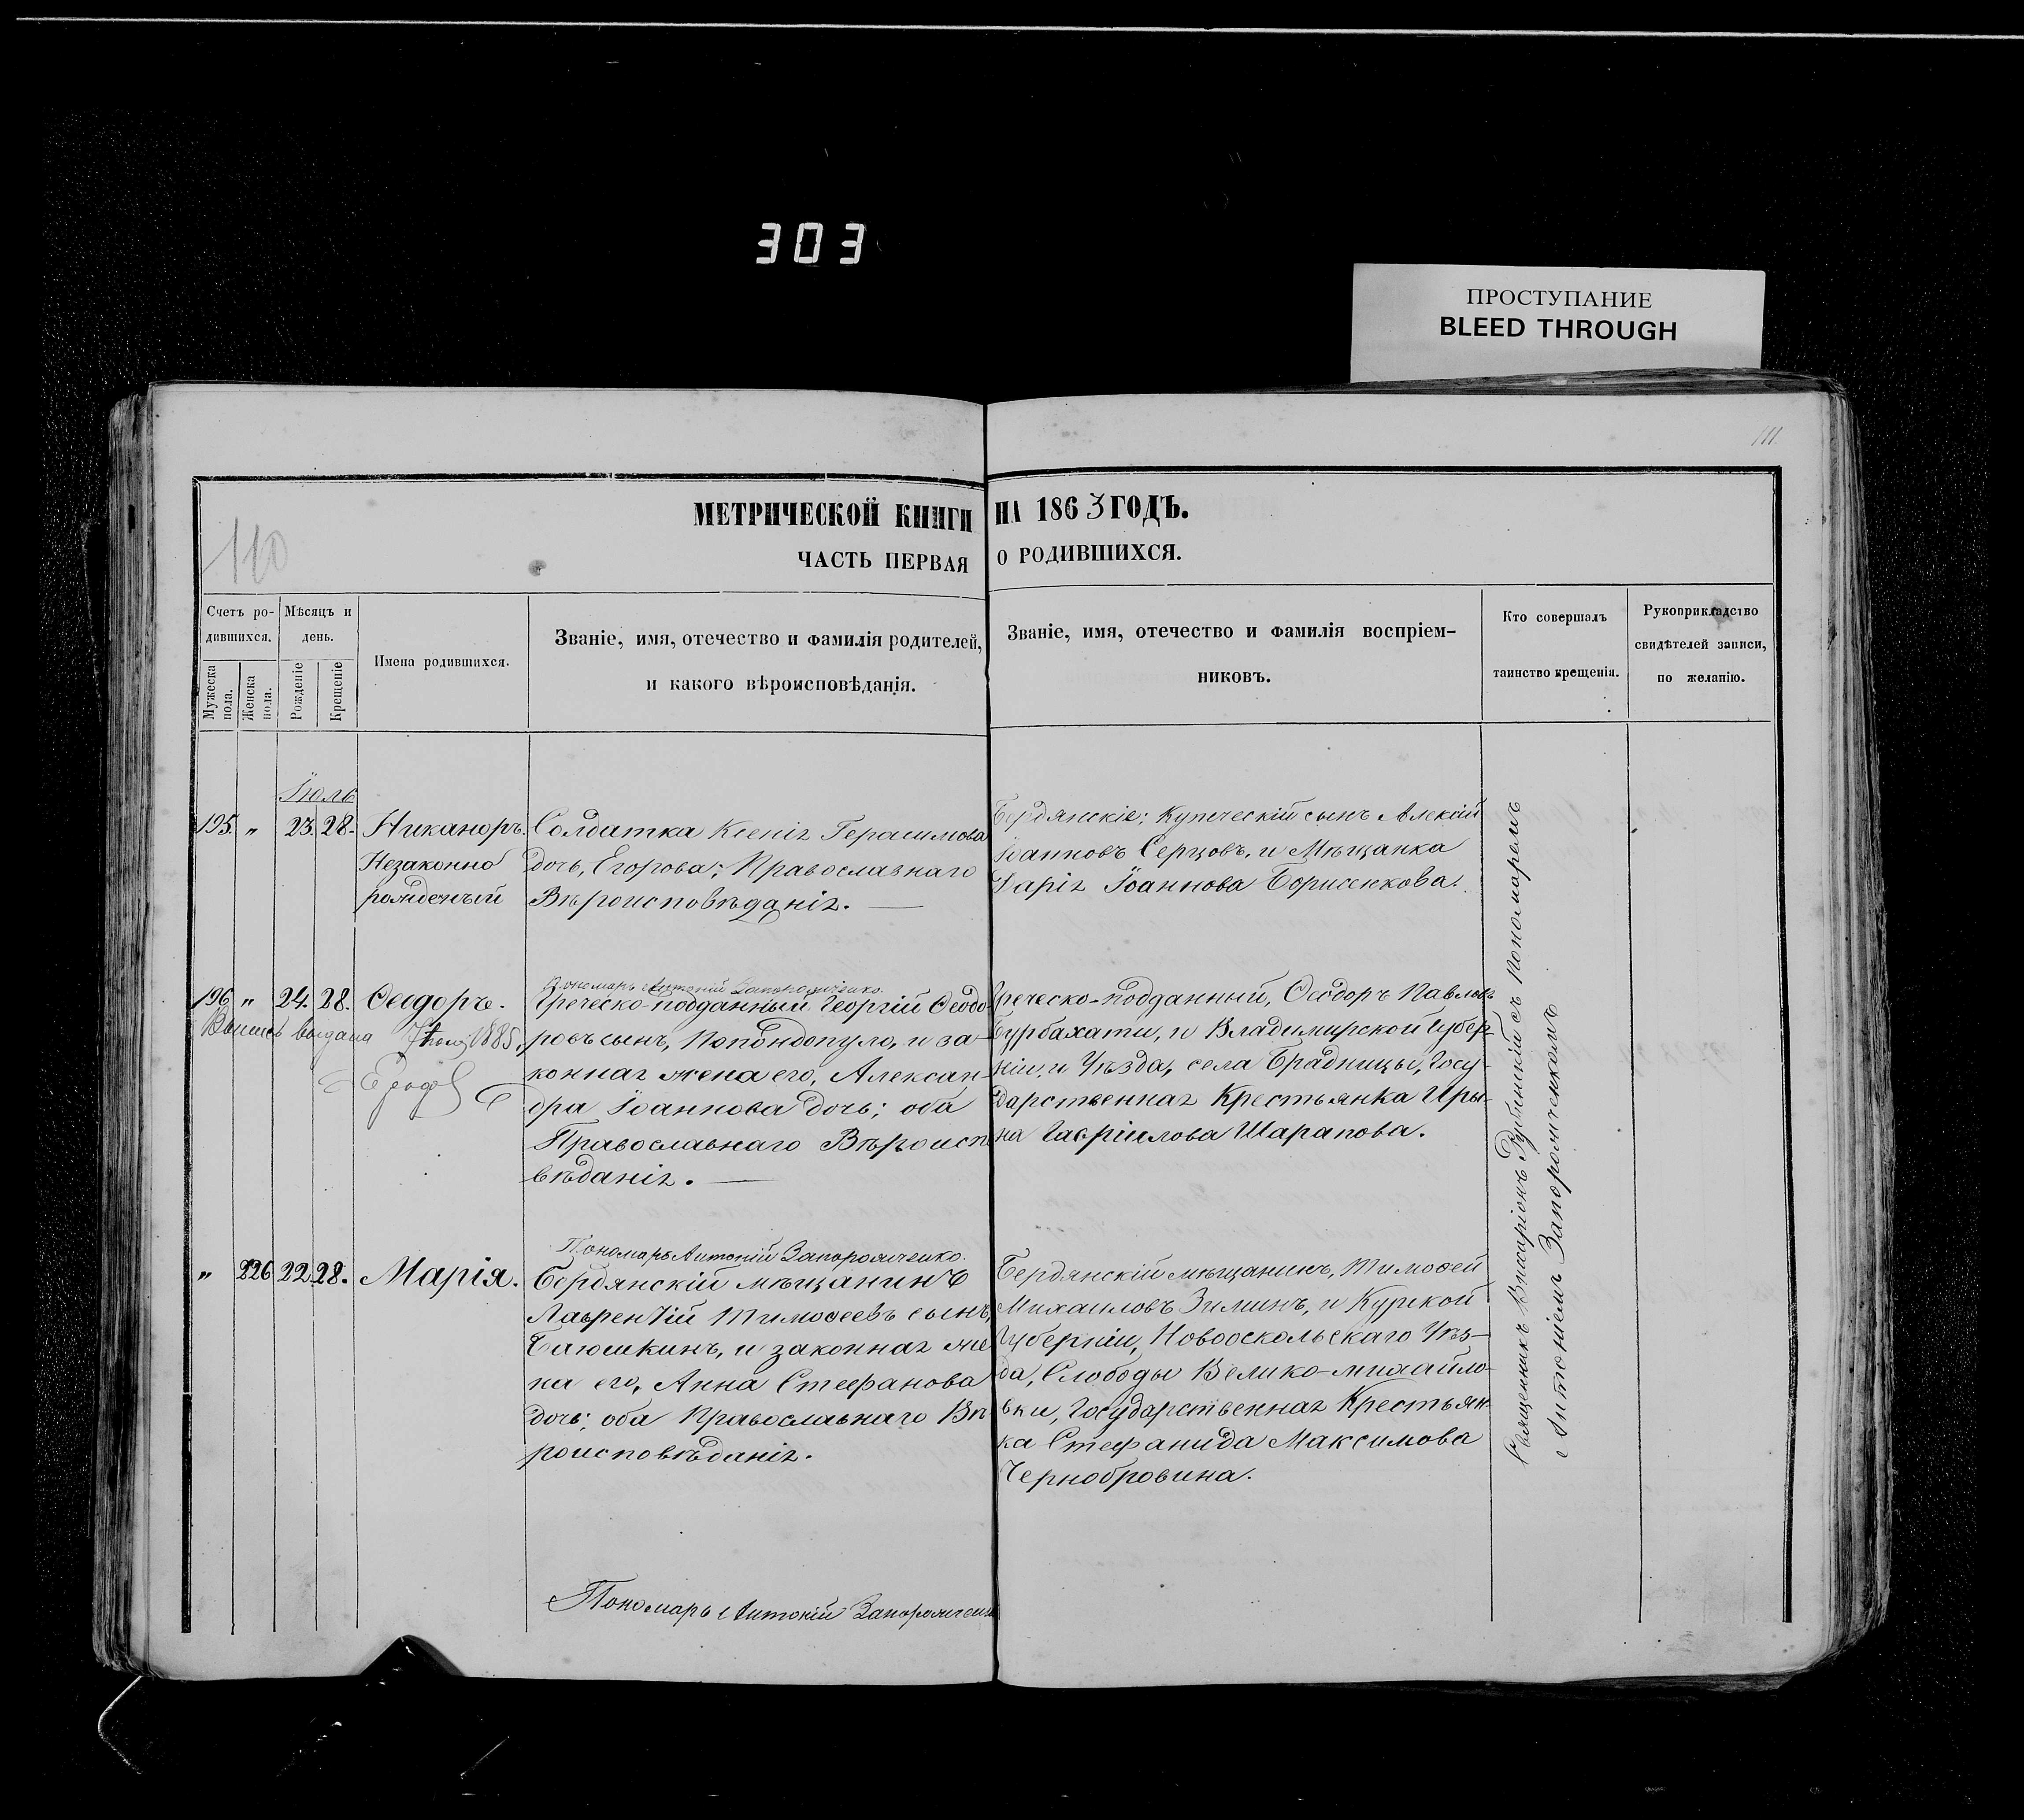 303
ПРОСТУПАНИЕ
BLEED THROUGH
111
110
МЕТРИЧЕСКОЙ КНИГИ НА 1863 ГОДЪ.
ЧАСТЬ ПЕРВАЯ О РОДИВШИХСЯ.
Счетъ ро-
дившихся.
Мужеска пола.
Женска пола.
Мѣсяцъ и
день.
Рожденіе
Крещеніе
Имена родившихся.
Званіе, имя, отечество и фамилія родителей,
и какого вѣроисповѣданія.
Званіе, имя, отечество и фамилія воспріем-
никовъ.
Кто совершалъ
таинство крещенія.
Рукоприкладство
свидѣтелей записи,
по желанію.
Іюль
195. " 23. 28. Никаноръ.
Незаконно
рожденый
Солдатка Ксенія Герасимова
дочь, Егорова; Православнаго
Вѣроисповѣданія.
Бердянскіе; Купеческій сынъ Алексій
Іоанновъ Серцовъ, и Мѣщанка
Дарія Іоаннова Борисенкова.
Пономарь Антоній Запорожченко.
196 " 24. 28. Ѳеодоръ.
выдана 1885,
Греческо-подданный Георгій Ѳеодо-
ровъ сынъ, Попондопуло, и за-
конная жена его, Алексан-
дра Іоаннова дочь; оба
Православнаго Вѣроисп
вѣданія.
Греческо-подданный, Ѳеодоръ Павловъ
Бурбахати, и Владимирской Губер-
ніи, и Уѣзда, села Брадницы, Госу-
дарственная Крестьянка Ири-
на Гавріилова Шарапова.
Пономарь Антоній Запорожченко.
" 226 22 28. Марія.
Бердянскій мѣщанинъ
Лаврентій Тимоѳеевъ сынъ,
Баюшкинъ, и законная же
на его, Анна Стефанова
дочь; оба Православнаго Вѣ-
роисповѣданія.
Бердянскій мѣщанинъ, Тимоѳей
Михаиловъ Зиминъ, и Курской
Губерніи, Новооскольскаго Уѣз-
да, Слободы Велико-михайло-
вки, Государственная Крестьян-
ка Стефанида Максимова
Чернобровина.
Священникъ Висаріонъ Рубинскій съ пономаремъ
Антоніемъ Запорожченкомъ
Пономарь Антоній Запорожченк